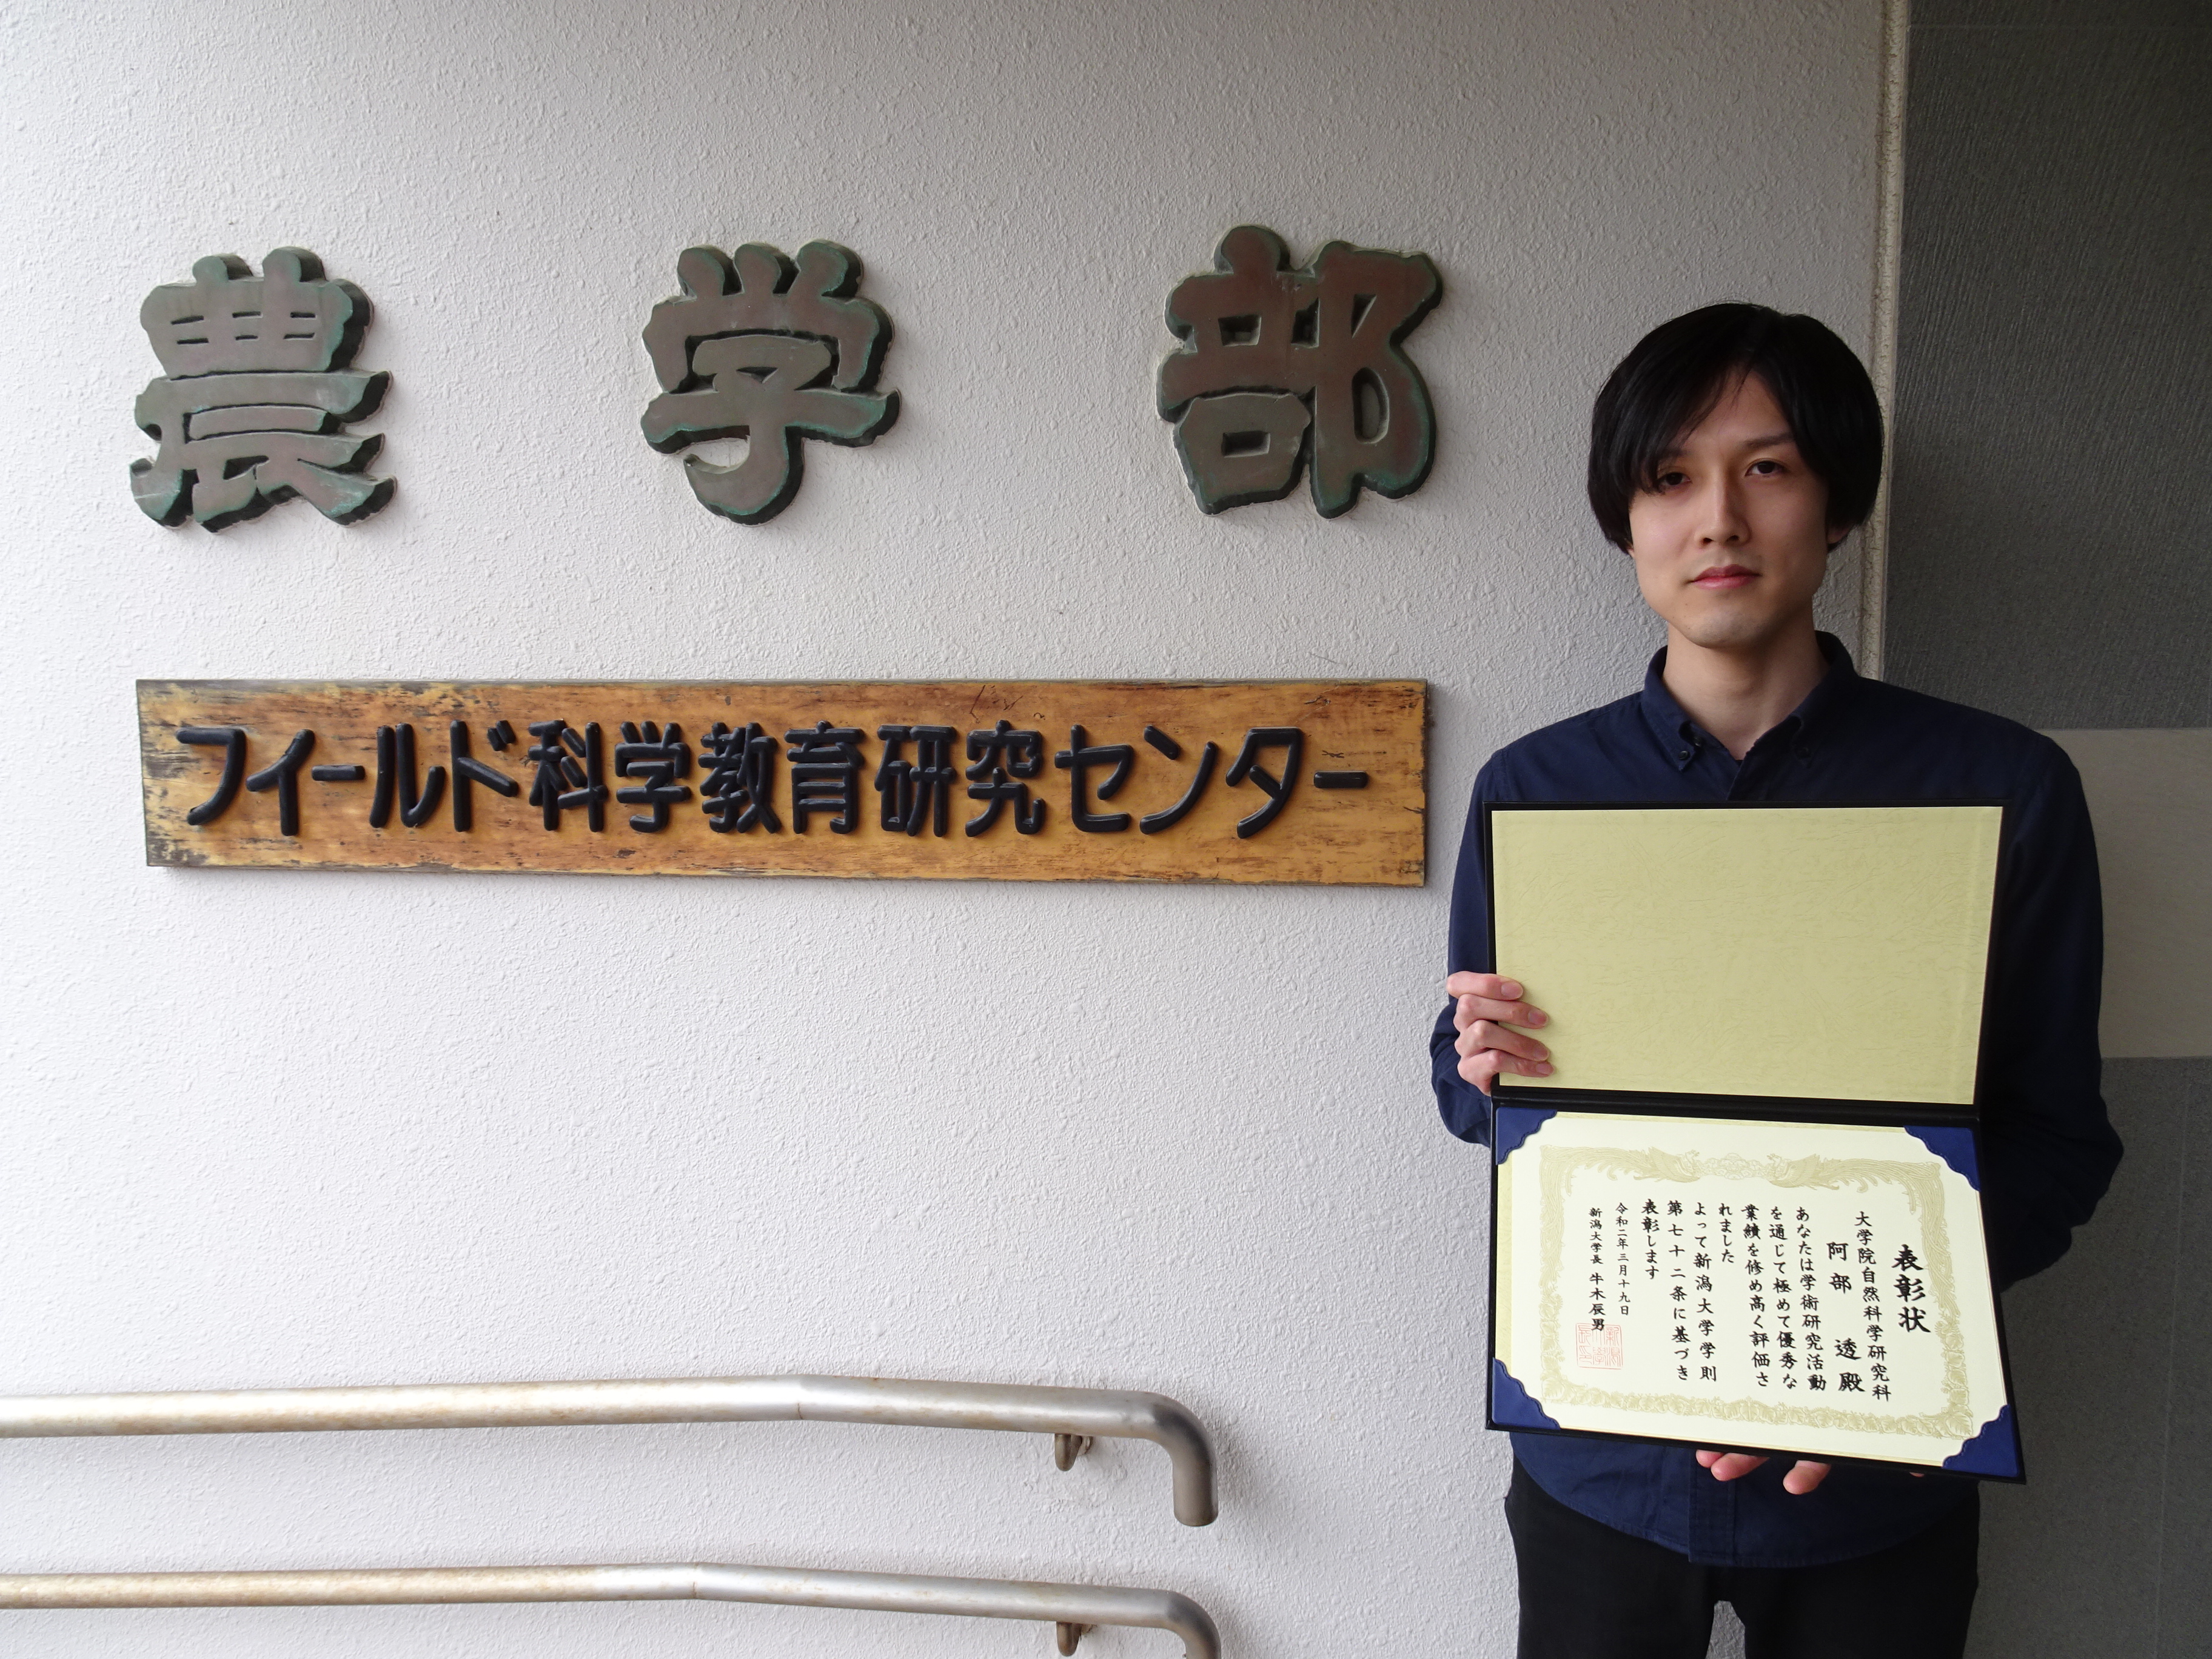 農学部
フィールド科学教育研究センター
表彰状
大学院自然科学研究科
阿部 透 殿
あなたは学術研究活動
を通じて極めて優秀な
業績を修め高く評価さ
れました
よって新潟大学学則
第七十二条に基づき
表彰します
令和二年三月十九日
新潟大学長 牛木辰男